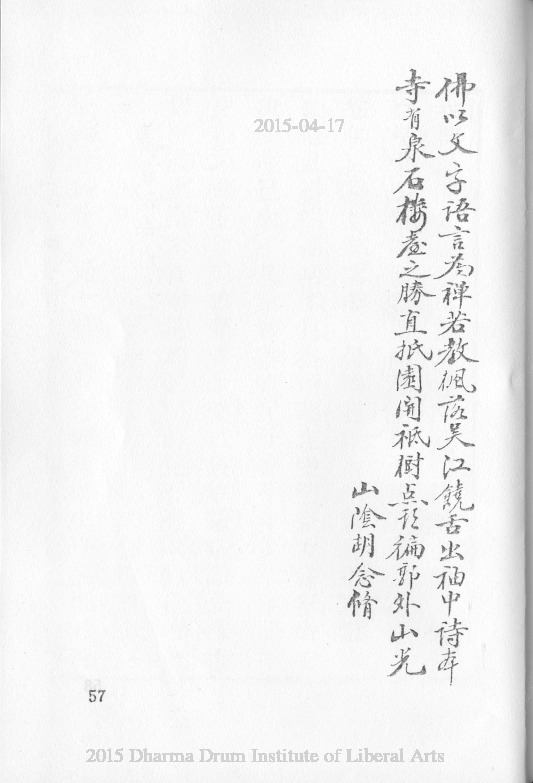 佛以文字語言為禪若教楓落吳江饒舌出袖中詩本
寺有泉石樓臺之勝直抵園開祇樹点頭徧郭外山光
山陰胡念脩
2015-04-17
57
2015 Dharma Drum Institute of Liberal Arts